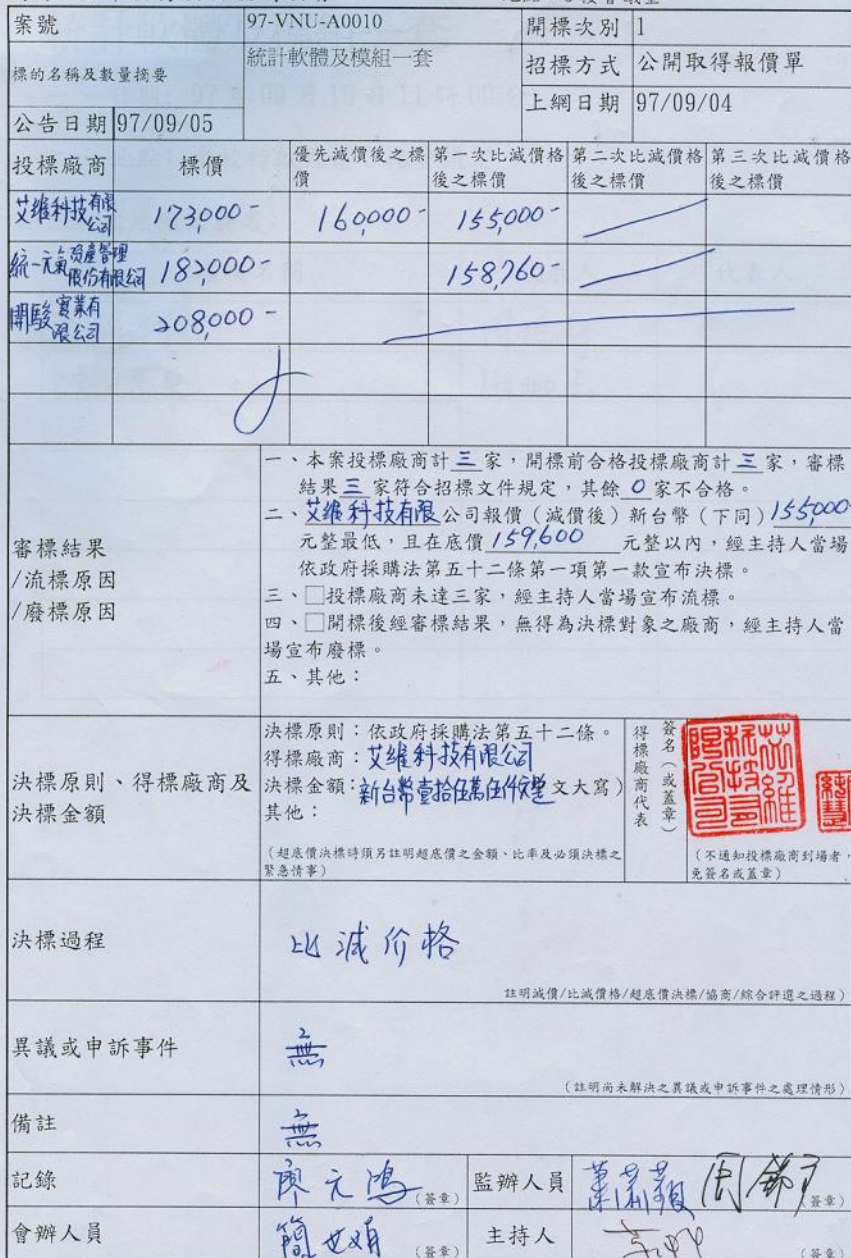 案號 97-VNU-A0010 開標次別 1
標的名稱及數量摘要 統計軟體及模組一套 招標方式 公開取得報價單
上網日期 97/09/04
公告日期 97/09/05
投標廠商 標價 優先減價後之標價 第一次比減價格後之標價 第二次比減價格後之標價 第三次比減價格後之標價
艾維科技有限公司 173,000- 160,000- 155,000-
統一元氣資產管理股份有限公司 182,000- 158,760-
開駿實業有限公司 208,000-
審標結果
/流標原因
/廢標原因
一、本案投標廠商計三家,開標前合格投標廠商計三家,審標
結果三家符合招標文件規定,其餘0家不合格。
二、艾維科技有限公司報價(減價後)新台幣(下同)155,000-
元整最低,且在底價159,600元整以內,經主持人當場
依政府採購法第五十二條第一項第一款宣布決標。
三、□投標廠商未達三家,經主持人當場宣布流標。
四、□開標後經審標結果,無得為決標對象之廠商,經主持人當
場宣布廢標。
五、其他:
決標原則、得標廠商及
決標金額
決標原則:依政府採購法第五十二條。
得標廠商:艾維科技有限公司
決標金額:新台幣壹拾伍萬伍仟元整文大寫)
其他:
(超底價決標時須另註明超底價之金額、比率及必須決標之
緊急情事)
得標廠商代表
簽名(或蓋章)
艾維科技有限公司
(不通知投標廠商到場者,
免簽名或蓋章)
決標過程 比減价格
註明減價/比減價格/超底價決標/協商/綜合評選之過程)
異議或申訴事件 無
(註明尚未解決之異議或申訴事件之處理情形)
備註 無
記錄 廖元鴻 (簽章) 監辦人員 (簽章)
會辦人員 (簽章) 主持人 (簽章)